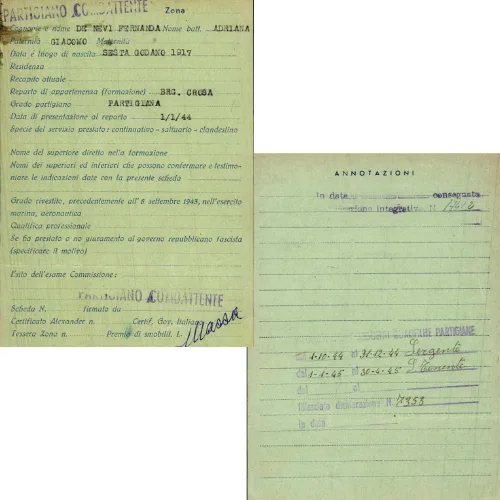 PARTIGIANO COMBATTENTE
Zona
Cognome e nome DE NEVI FERNANDA Nome batt. ADRIANA
Paternità GIACOMO Maternità
Data e luogo di nascita SESTA GODANO 1917
Residenza
Recapito attuale
Reparto di appartenenza (formazione) BRG. CROSA
Grado partigiano PARTIGIANA
Data di presentazione al reparto 1/1/44
Specie del servizio prestato: continuativo - saltuario - clandestino
Nome del superiore diretto nella formazione
Nomi dei superiori ed inferiori che possono confermare e testimo-
niare le indicazioni date con la presente scheda
Grado rivestito, precedentemente all'8 settembre 1943, nell'esercito
marina, aeronautica
Qualifica professionale
Se ha prestato o no giuramento al governo repubblicano fascista
(specificare il motivo)
Esito dell'esame Commissione:
PARTIGIANO COMBATTENTE
Scheda N. firmata da
Certificato Alexander n. Certif. Gov. Italian
Tessera Zona n. Premio di smobilit. L.
Massa
ANNOTAZIONI
In data consegnata
integrativa N.
QUALIFICHE PARTIGIANE
dal 1-10-44 al 31-12-44 Sergente
dal 1-1-45 al 30-4-45 S. Tenente
del al
Rilasciata dichiarazione N. 7353
in data